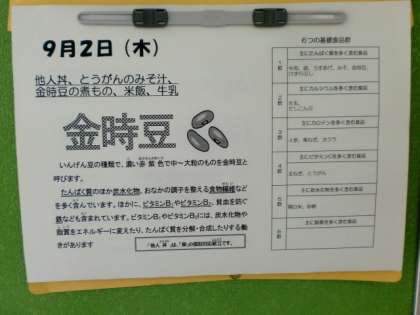 9月2日（木）
他人丼、とうがんのみそ汁、
金時豆の煮もの、米飯、牛乳
金時豆
いんげん豆の種類で、濃い赤紫色で中～大粒のものを金時豆と
呼びます。
たんぱく質のほか炭水化物、おなかの調子を整える食物繊維など
を多く含んでいます。ほかに、ビタミンB₁やビタミンB₂、貧血を防ぐ
鉄なども含まれています。ビタミンB₁やビタミンB₂には、炭水化物や
脂質をエネルギーに変えたり、たんぱく質を分解・合成したりする働
きがあります
「他人丼」は、「卵」の個別対応献立です。
6つの基礎食品群
1群
主にたんぱく質を多く含む食品
2群
主にカルシウムを多く含む食品
牛乳
だしこんぶ
3群
主にカロテンを多く含む食品
4群
主にビタミンCを多く含む食品
玉ねぎ、とうがん
5群
主に炭水化物を多く含む食品
6群
主に脂質を多く含む食品